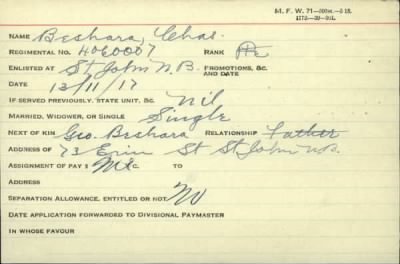 M. F. W. 71
NAME Beshara, Chas.
REGIMENTAL NO. 4060007 RANK Pte
ENLISTED AT St John N.B. PROMOTIONS, &C. AND DATE
DATE 13/11/17
IF SERVED PREVIOUSLY, STATE UNIT, &C. Nil
MARRIED, WIDOWER, OR SINGLE Single
NEXT OF KIN Geo. Beshara RELATIONSHIP Father
ADDRESS OF 73 Erin St St John N.B.
ASSIGNMENT OF PAY $ C TO
ADDRESS
SEPARATION ALLOWANCE, ENTITLED OR NOT No
DATE APPLICATION FORWARDED TO DIVISIONAL PAYMASTER
IN WHOSE FAVOUR